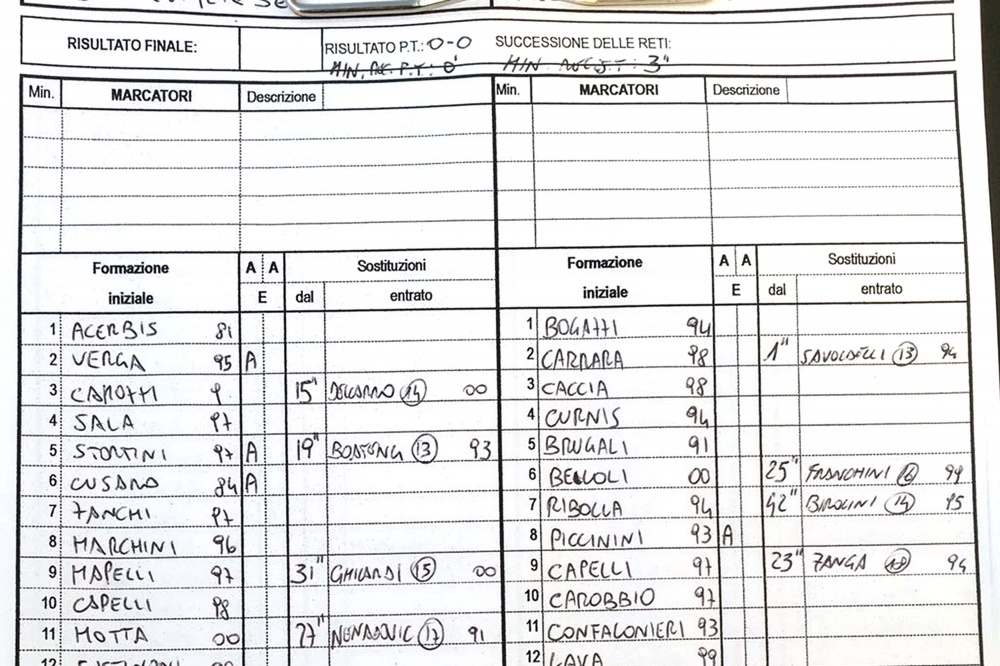 RISULTATO FINALE: RISULTATO P.T.: 0-0 SUCCESSIONE DELLE RETI:
MIN. REC. P.T.: 0' MIN. REC. S.T.: 3"
Min. MARCATORI Descrizione Min. MARCATORI Descrizione
Formazione A A Sostituzioni Formazione A A Sostituzioni
iniziale E dal entrato iniziale E dal entrato
1 ACERBIS 81 1 BOGATTI 94
2 VERGA 95 A 2 CARRARA 98 1" SAVOLDELLI 13 94
3 CAROTTI 9 15" 14 00 3 CACCIA 98
4 SALA 97 4 CURNIS 94
5 97 A 19" BOATENG 13 93 5 BRUGALI 91
6 CUSARO 84 A 6 BELLOLI 00 25" FRANCHINI 99
7 ZANCHI 97 7 RIBOLLA 94 42" BIROLINI 14 95
8 MARCHINI 96 8 PICCININI 93 A
9 MAPELLI 97 31" GHILARDI 15 00 9 CAPELLI 97 23" ZANGA 18 94
10 CAPELLI 98 10 CAROBBIO 97
11 MOTTA 00 27" NENADOVIC 17 91 11 CONFALONIERI 93
12 12 LAVA 99